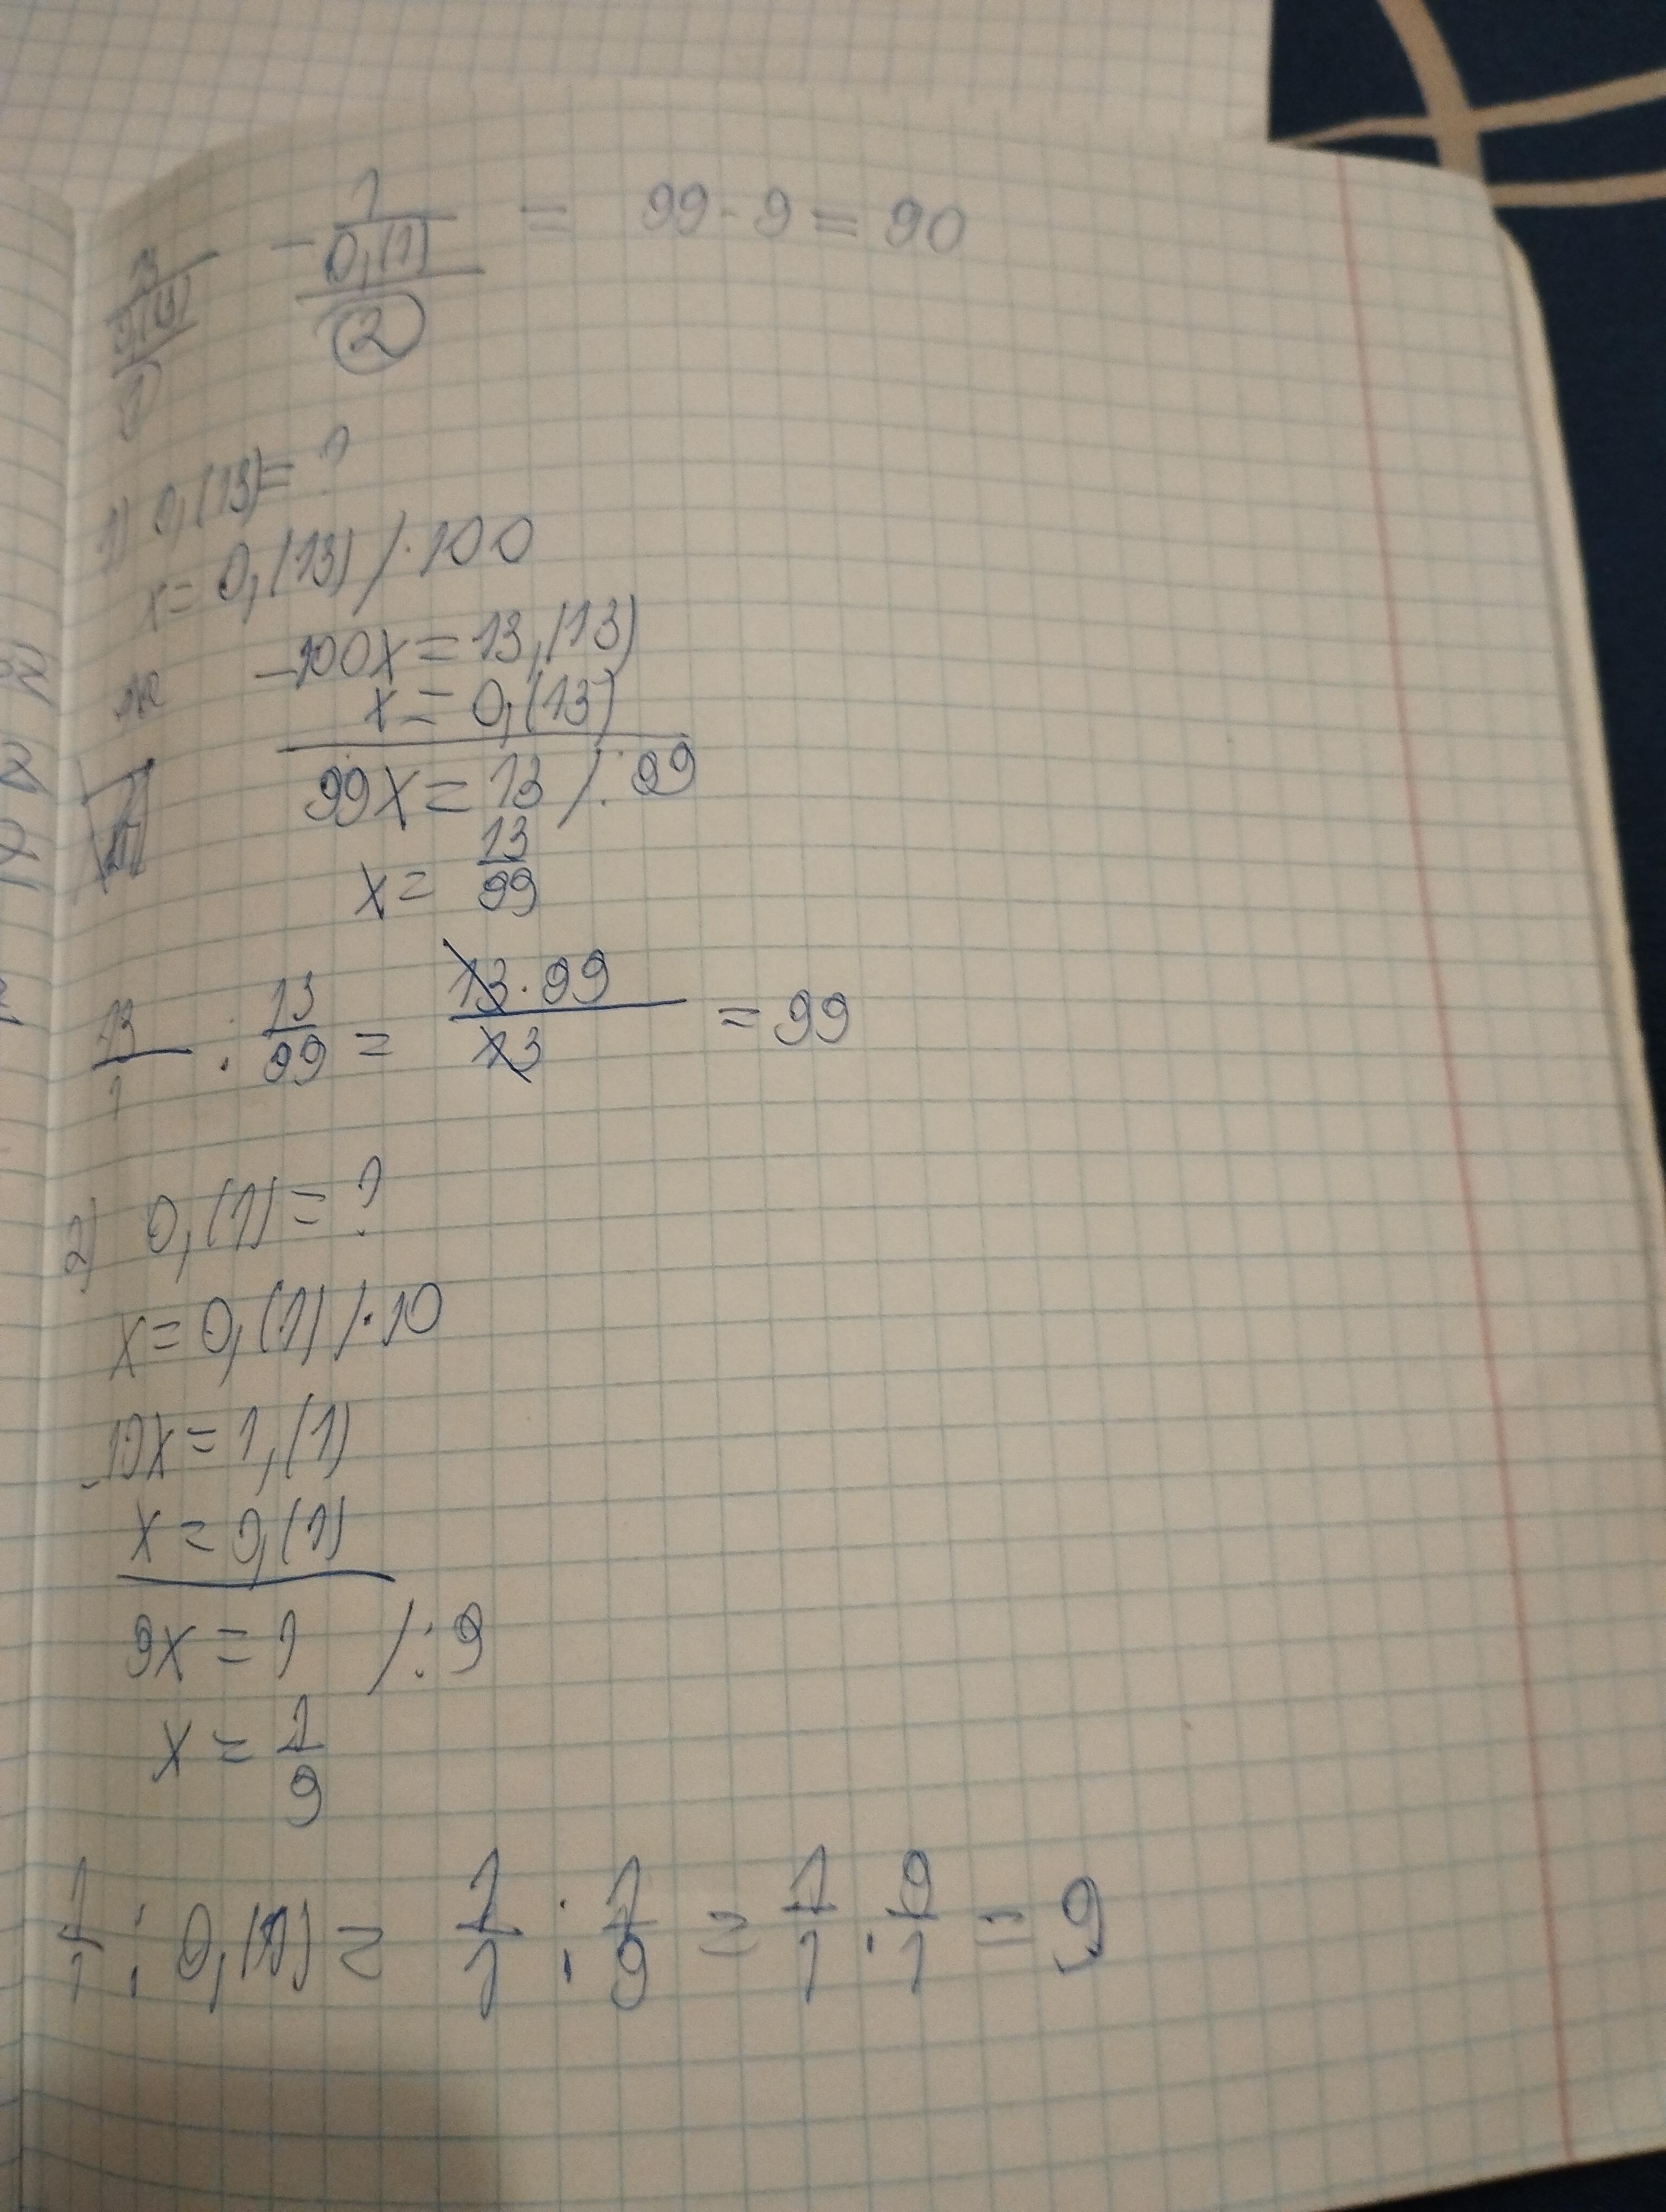 13/0,(13) - 1/0,(1) = 99 - 9 = 90
1) 2)
1) 0,(13) = ?
x = 0,(13) / · 100
- 100x = 13,(13)
x = 0,(13)
99x = 13 / : 99
x = 13/99
13/1 : 13/99 = 13 · 99/13 = 99
2) 0,(1) = ?
x = 0,(1) / · 10
- 10x = 1,(1)
x = 0,(1)
9x = 1 / : 9
x = 1/9
1/1 : 0,(1) = 1/1 : 1/9 = 1/1 · 9/1 = 9